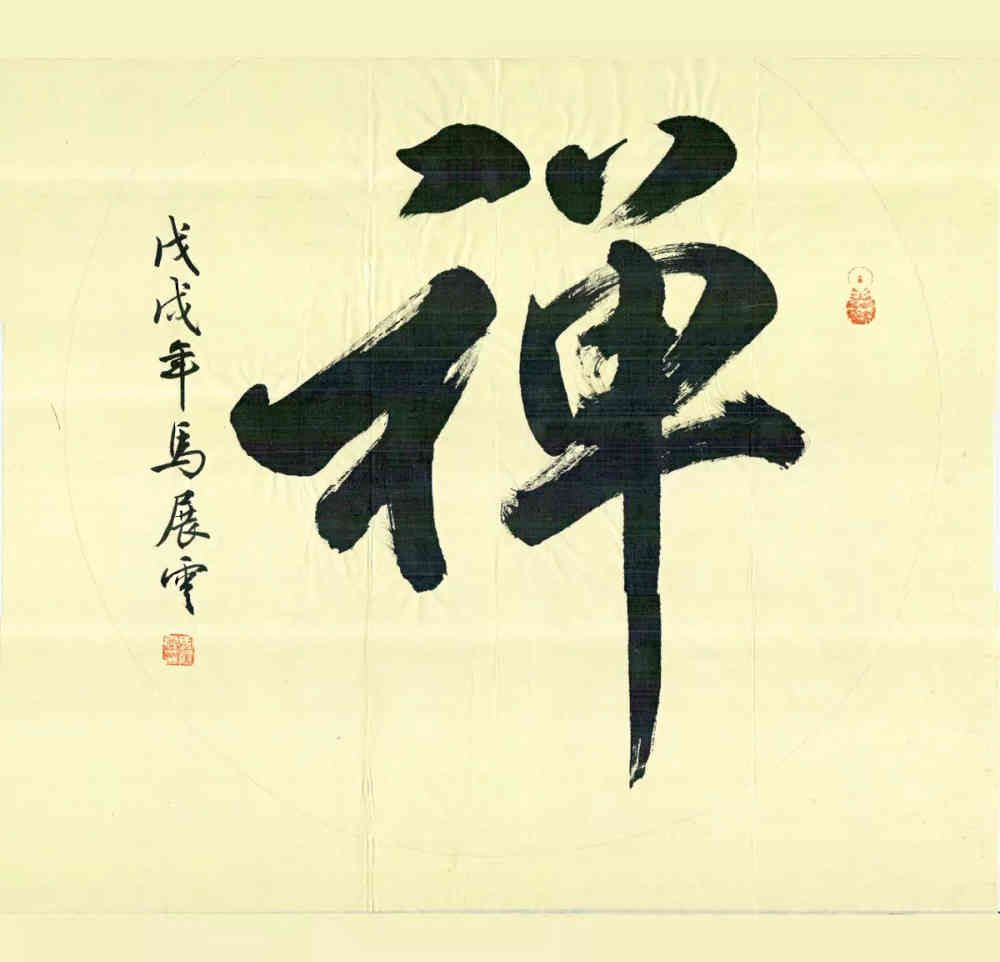 禅
戊戌年馬展雲